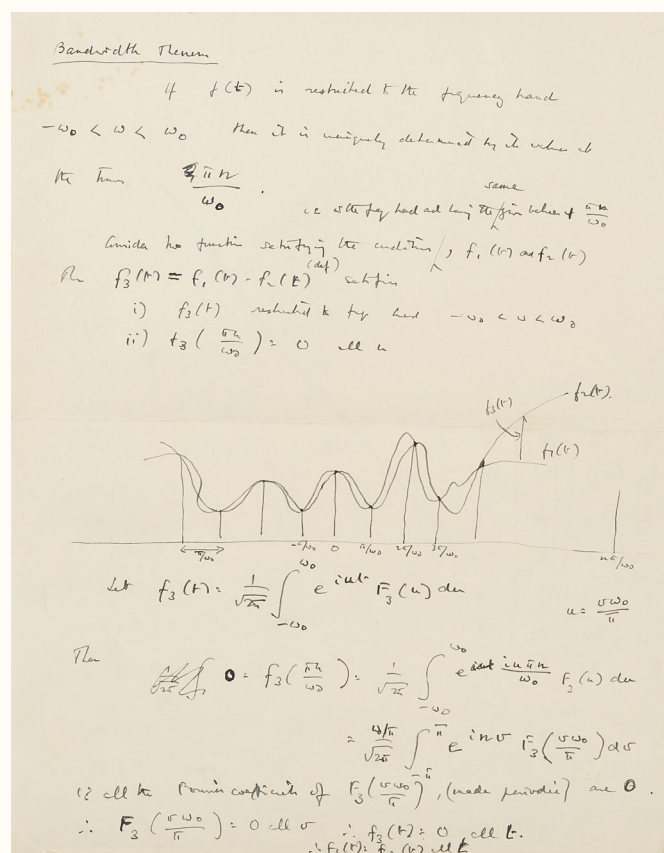 Bandwidth Theorem
If f(t) is restricted to the frequency band
-ω₀ < ω < ω₀ then it is uniquely determined by its values at
the times πn/ω₀ .
same
i.e. with freq band and having the given values at πn/ω₀
Consider two functions satisfying the conditions, f₁(t) and f₂(t)
(def)
Then f₃(t) = f₁(t) - f₂(t) satisfies
i) f₃(t) restricted to freq band -ω₀ < ω < ω₀
ii) f₃(πn/ω₀) = 0 all n
f₃(t) f₂(t).
f₁(t)
π/ω₀ -π/ω₀ 0 π/ω₀ 2π/ω₀ 3π/ω₀ nπ/ω₀
Let f₃(t) = 1/√2π ∫_{-ω₀}^{ω₀} e^{iut} F₃(u) du
u = vω₀/π
Then 0 = f₃(πn/ω₀) = 1/√2π ∫_{-ω₀}^{ω₀} e^{iuπn/ω₀} F₃(u) du
= ω/π/√2π ∫_{-π}^{π} e^{inv} F₃(vω₀/π) dv
i.e. all the Fourier coefficients of F₃(vω₀/π), (made periodic) are 0.
∴ F₃(vω₀/π) = 0 all v ∴ f₃(t) = 0 all t.
∴ f₁(t) = f₂(t) all t